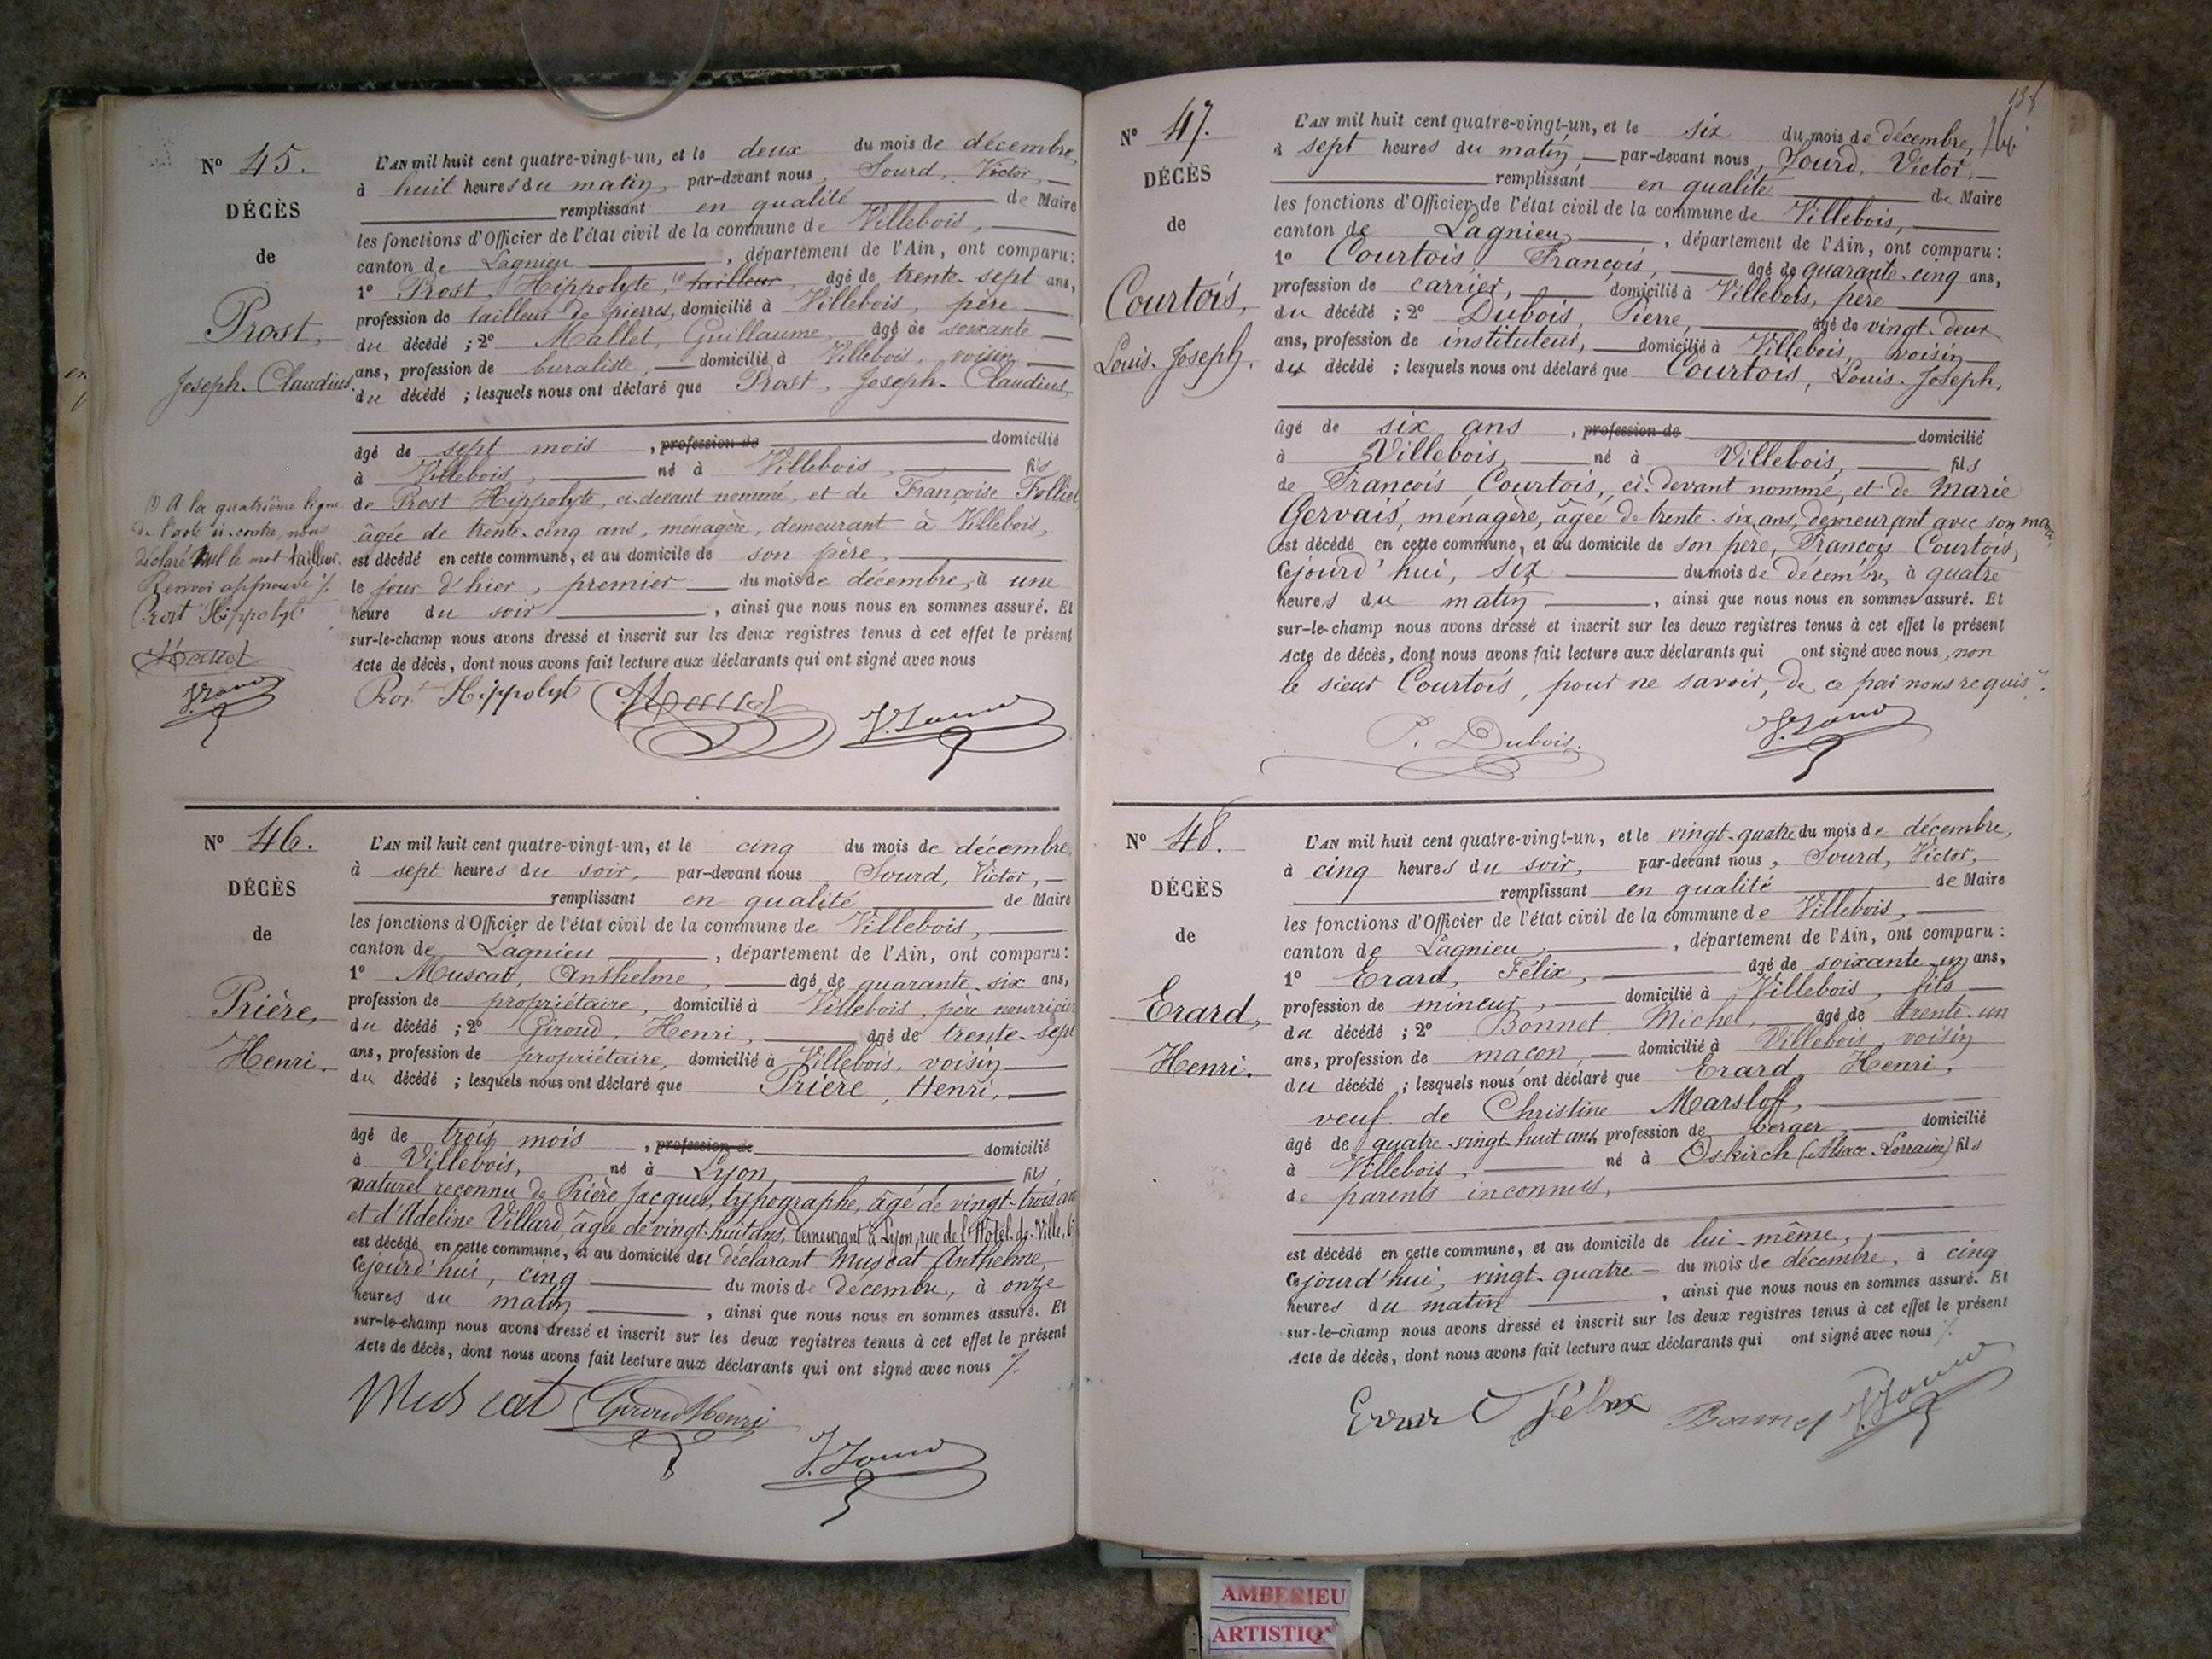 N° 45.
DÉCÈS
de
Prost,
Joseph-Claudius.
(1) A la quatrième ligne
de l'acte ci-contre, nous
déclaré nul le mot tailleur.
Renvoi approuvé ./.
Prost Hippolyte
L'AN mil huit cent quatre-vingt-un, et le deux du mois de décembre,
à huit heures du matin, par-devant nous, Sourd, Victor,
remplissant en qualité de Maire
les fonctions d'Officier de l'état civil de la commune de Villebois,
canton de Lagnieu, département de l'Ain, ont comparu:
1° Prost, Hippolyte, (1) tailleur, âgé de trente-sept ans,
profession de tailleur de pierres, domicilié à Villebois, père
du décédé ; 2° Mallet, Guillaume, âgé de soixante
ans, profession de buraliste, domicilié à Villebois, voisin
du décédé ; lesquels nous ont déclaré que Prost, Joseph-Claudius,
âgé de sept mois, profession de domicilié
à Villebois, né à Villebois, fils
de Prost Hippolyte, ci-devant nommé, et de Françoise Folliet
âgée de trente-cinq ans, ménagère, demeurant à Villebois,
est décédé en cette commune, et au domicile de son père,
le jour d'hier, premier du mois de décembre, à une
heure du soir, ainsi que nous nous en sommes assuré. Et
sur-le-champ nous avons dressé et inscrit sur les deux registres tenus à cet effet le présent
Acte de décès, dont nous avons fait lecture aux déclarants qui ont signé avec nous
Prost Hippolyt Mallet V. Sourd
N° 46.
DÉCÈS
de
Prière,
Henri.
L'AN mil huit cent quatre-vingt-un, et le cinq du mois de décembre,
à sept heures du soir, par-devant nous Sourd, Victor,
remplissant en qualité de Maire
les fonctions d'Officier de l'état civil de la commune de Villebois,
canton de Lagnieu, département de l'Ain, ont comparu:
1° Muscat, Anthelme, âgé de quarante-six ans,
profession de propriétaire, domicilié à Villebois, père nourricier
du décédé ; 2° Giroud, Henri, âgé de trente-sept
ans, profession de propriétaire, domicilié à Villebois, voisin
du décédé ; lesquels nous ont déclaré que Prière, Henri,
âgé de trois mois, profession de domicilié
à Villebois, né à Lyon, fils
naturel reconnu de Prière Jacques, typographe, âgé de vingt-trois ans
et d'Adeline Villard, âgée de vingt-huit ans, demeurant à Lyon, rue de l'Hôtel-de-Ville,
est décédé en cette commune, et au domicile du déclarant Muscat Anthelme,
Cejourd'hui, cinq du mois de décembre, à onze
heures du matin, ainsi que nous nous en sommes assuré. Et
sur-le-champ nous avons dressé et inscrit sur les deux registres tenus à cet effet le présent
Acte de décès, dont nous avons fait lecture aux déclarants qui ont signé avec nous ./.
Muscat Giroud Henri
V. Sourd
138
N° 47.
DÉCÈS
de
Courtois,
Louis-Joseph.
L'AN mil huit cent quatre-vingt-un, et le six du mois de décembre,
à sept heures du matin, par-devant nous, Sourd, Victor,
remplissant en qualité de Maire
les fonctions d'Officier de l'état civil de la commune de Villebois,
canton de Lagnieu, département de l'Ain, ont comparu:
1° Courtois François, âgé de quarante-cinq ans,
profession de carrier, domicilié à Villebois, père
du décédé ; 2° Dubois, Pierre, âgé de vingt-deux
ans, profession de instituteur, domicilié à Villebois, voisin
du décédé ; lesquels nous ont déclaré que Courtois, Louis-Joseph,
âgé de six ans, profession de domicilié
à Villebois, né à Villebois, fils
de François Courtois, ci-devant nommé, et de Marie
Gervais, ménagère, âgée de trente-six ans, demeurant avec son mari,
est décédé en cette commune, et au domicile de son père, François Courtois,
Cejourd'hui, six du mois de décembre, à quatre
heures du matin, ainsi que nous nous en sommes assuré. Et
sur-le-champ nous avons dressé et inscrit sur les deux registres tenus à cet effet le présent
Acte de décès, dont nous avons fait lecture aux déclarants qui ont signé avec nous, non
le sieur Courtois, pour ne savoir, de ce par nous requis ./.
P. Dubois. V. Sourd
N° 48.
DÉCÈS
de
Erard,
Henri.
L'AN mil huit cent quatre-vingt-un, et le vingt-quatre du mois de décembre,
à cinq heures du soir, par-devant nous, Sourd, Victor,
remplissant en qualité de Maire
les fonctions d'Officier de l'état civil de la commune de Villebois,
canton de Lagnieu, département de l'Ain, ont comparu:
1° Erard, Félix, âgé de soixante-un ans,
profession de mineur, domicilié à Villebois, fils
du décédé ; 2° Bonnet Michel, âgé de trente-un
ans, profession de maçon, domicilié à Villebois, voisin
du décédé ; lesquels nous ont déclaré que Erard, Henri,
veuf de Christine Marsloff,
âgé de quatre-vingt-huit ans, profession de berger, domicilié
à Villebois, né à Oskirch (Alsace-Lorraine) fils
de parents inconnus,
est décédé en cette commune, et au domicile de lui-même,
Cejourd'hui, vingt-quatre du mois de décembre, à cinq
heures du matin, ainsi que nous nous en sommes assuré. Et
sur-le-champ nous avons dressé et inscrit sur les deux registres tenus à cet effet le présent
Acte de décès, dont nous avons fait lecture aux déclarants qui ont signé avec nous ./.
Erard Félix Bonnet V. Sourd
AMBERIEU
ARTISTIQ